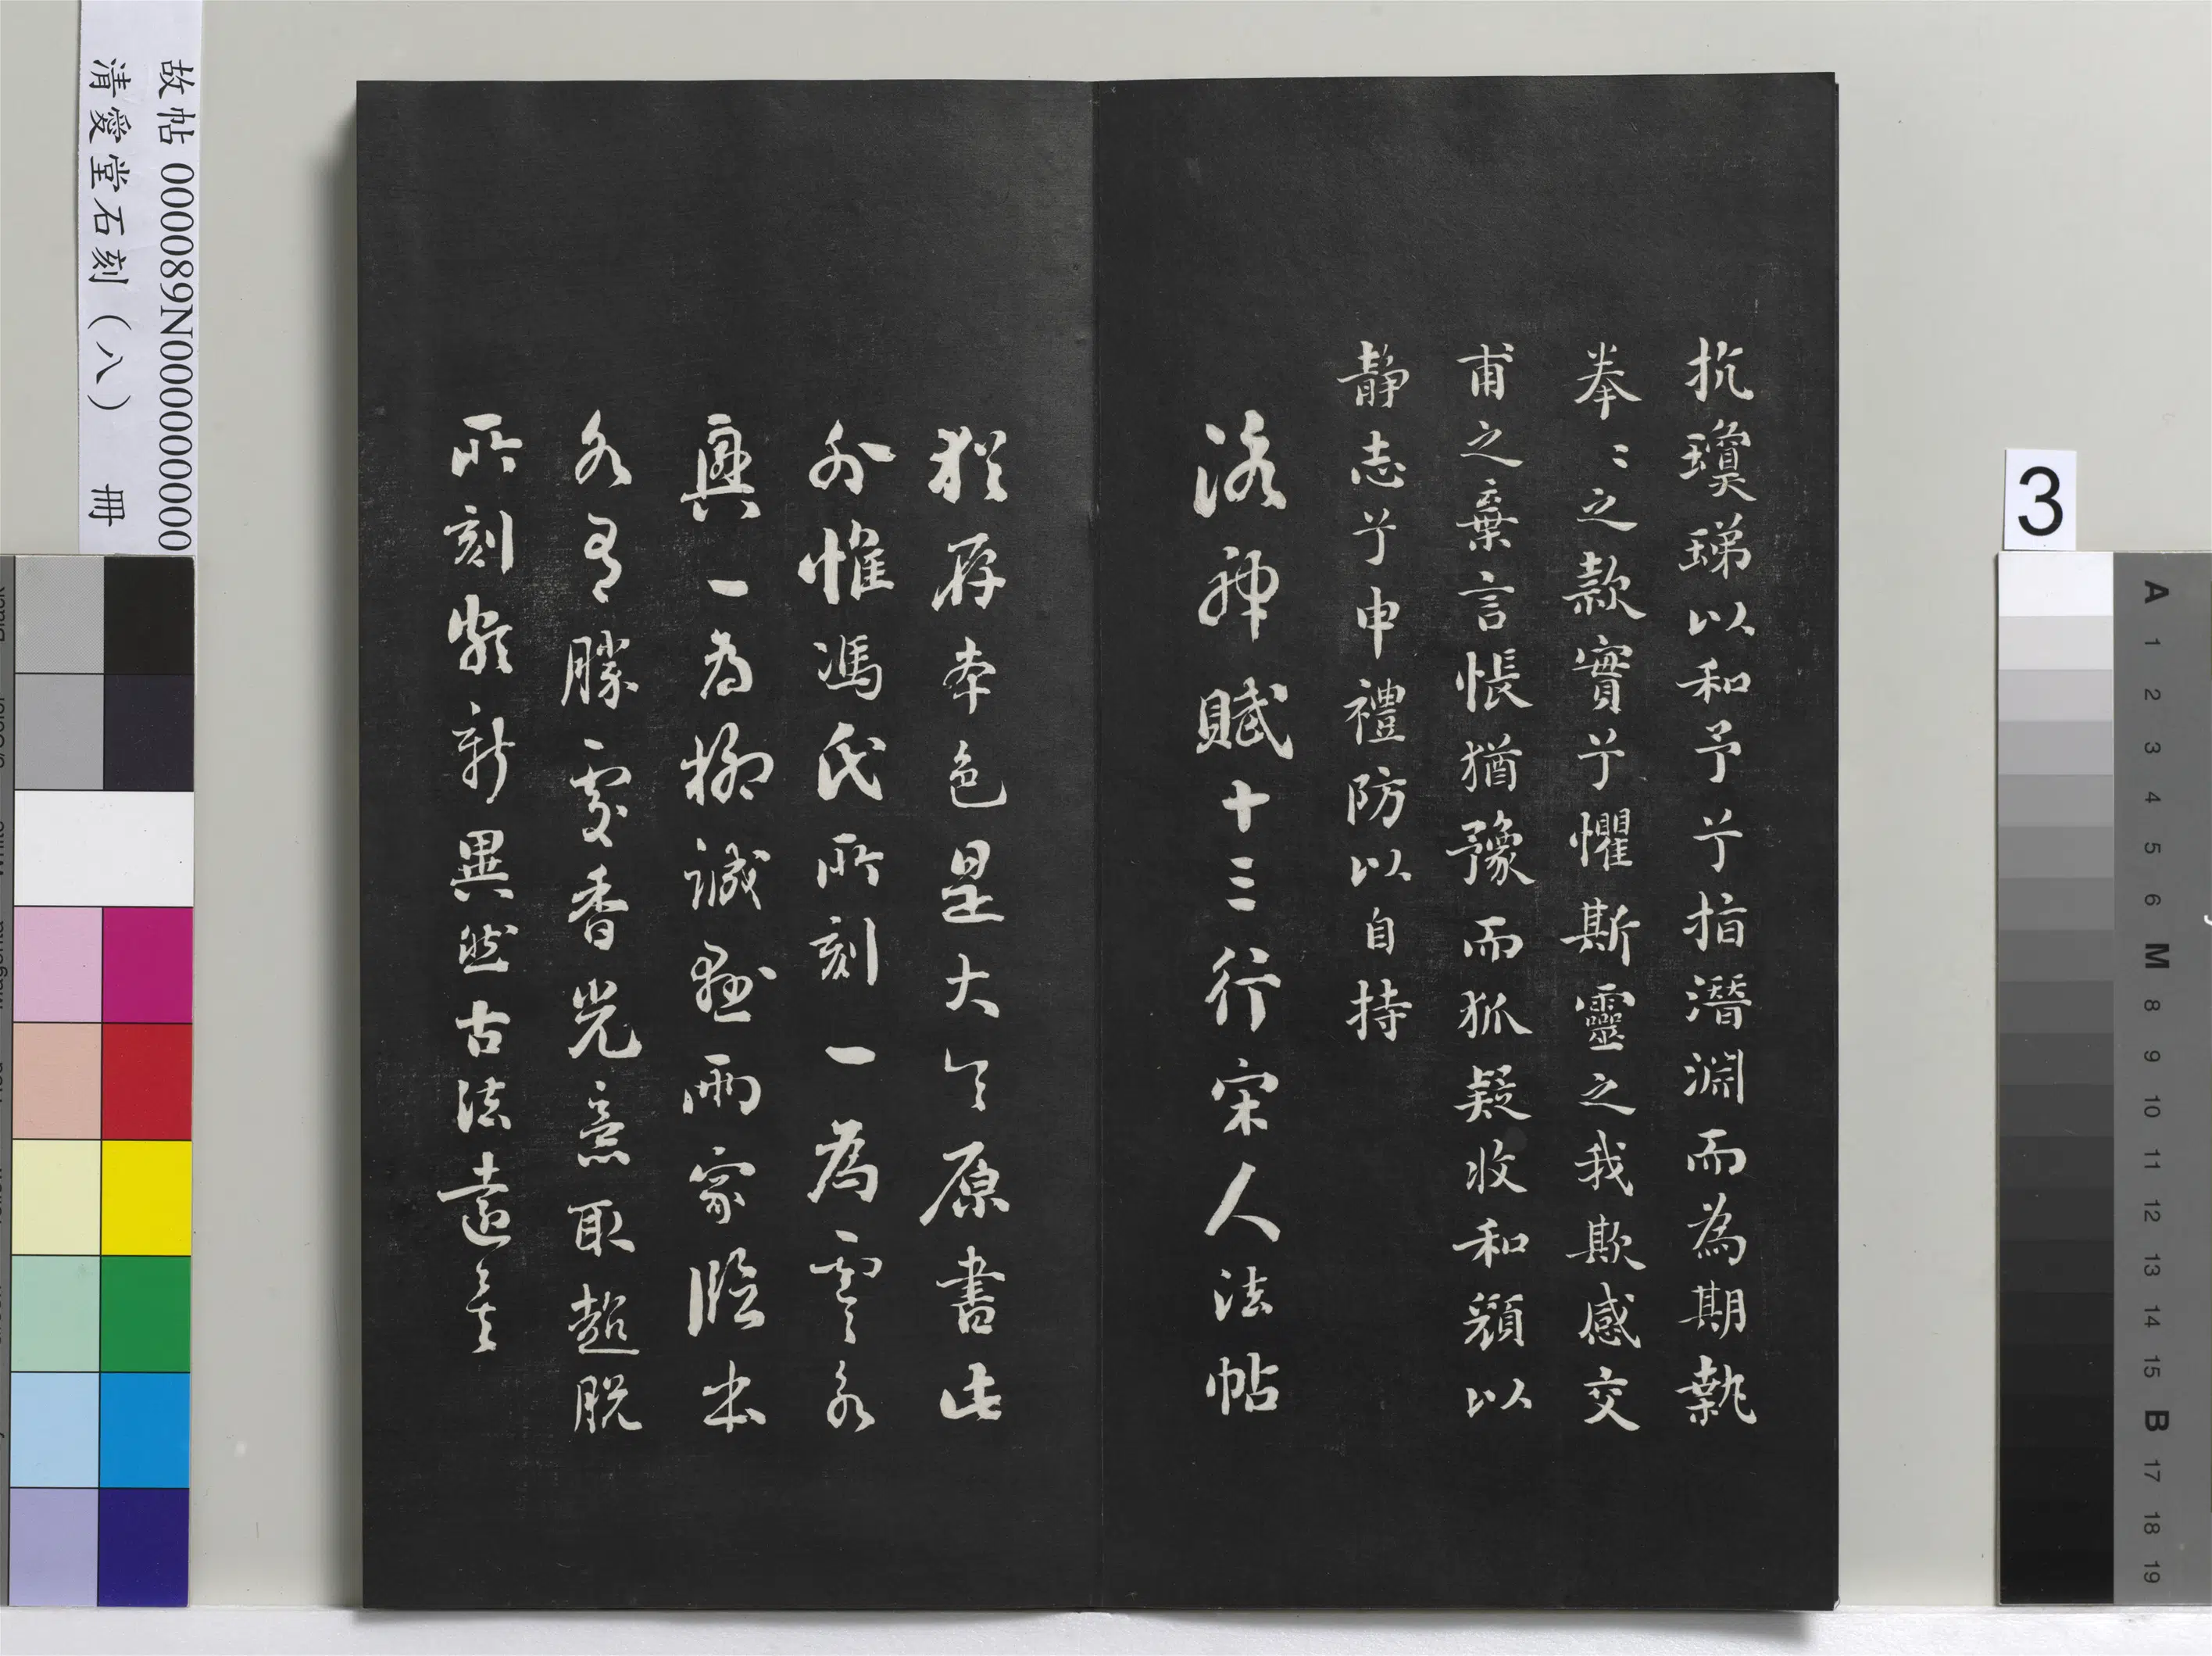 抗瓊珶以和予兮指潛淵而為期執
拳〻之款實兮懼斯靈之我欺感交
甫之棄言悵猶豫而狐疑收和顏以
靜志兮申禮防以自持
洛神賦十三行宋人法帖
猶存本色是大令原書此
外惟馮氏所刻一為虞永
興一為柳誠懸兩家臨本
各有勝處香光意取超脫
所刻新異然古法遠矣
故帖 000089N000000000
清愛堂石刻（八） 冊
3
A 1 2 3 4 5 6 M 8 9 10 11 12 13 14 15 B 17 18 19